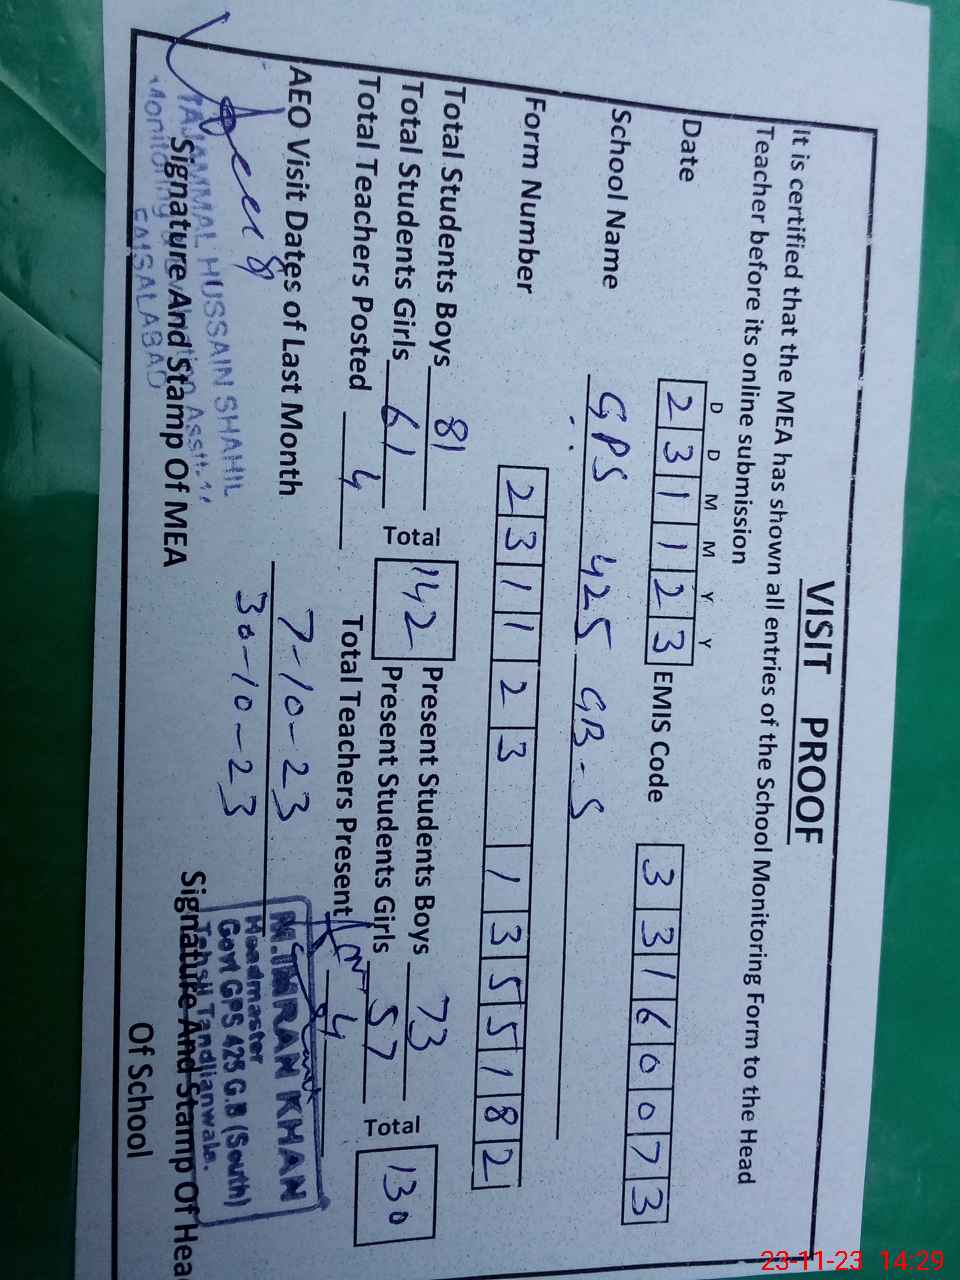 VISIT PROOF
It is certified that the MEA has shown all entries of the School Monitoring Form to the Head
Teacher before its online submission
D D M M Y Y
Date 2 3 1 1 2 3 EMIS Code 3 3 1 6 0 0 7 3
School Name GPS 425 GB-S
Form Number 2 3 1 1 2 3 1 3 5 5 1 8 2
Total Students Boys 81 Present Students Boys 73
Total 142 Total 130
Total Students Girls 61 Present Students Girls 57
Total Teachers Posted 4 Total Teachers Present 4
AEO Visit Dates of Last Month 7-10-23
30-10-23
TAJAMMAL HUSSAIN SHAHIL
Monitoring
FAISALABAD
Signature And Stamp Of MEA
M.IMRAN KHAN
Headmaster
Govt GPS 425 G.B (South)
Tehsil Tandlianwala.
Signature And Stamp Of Hea
Of School
23-11-23 14:29